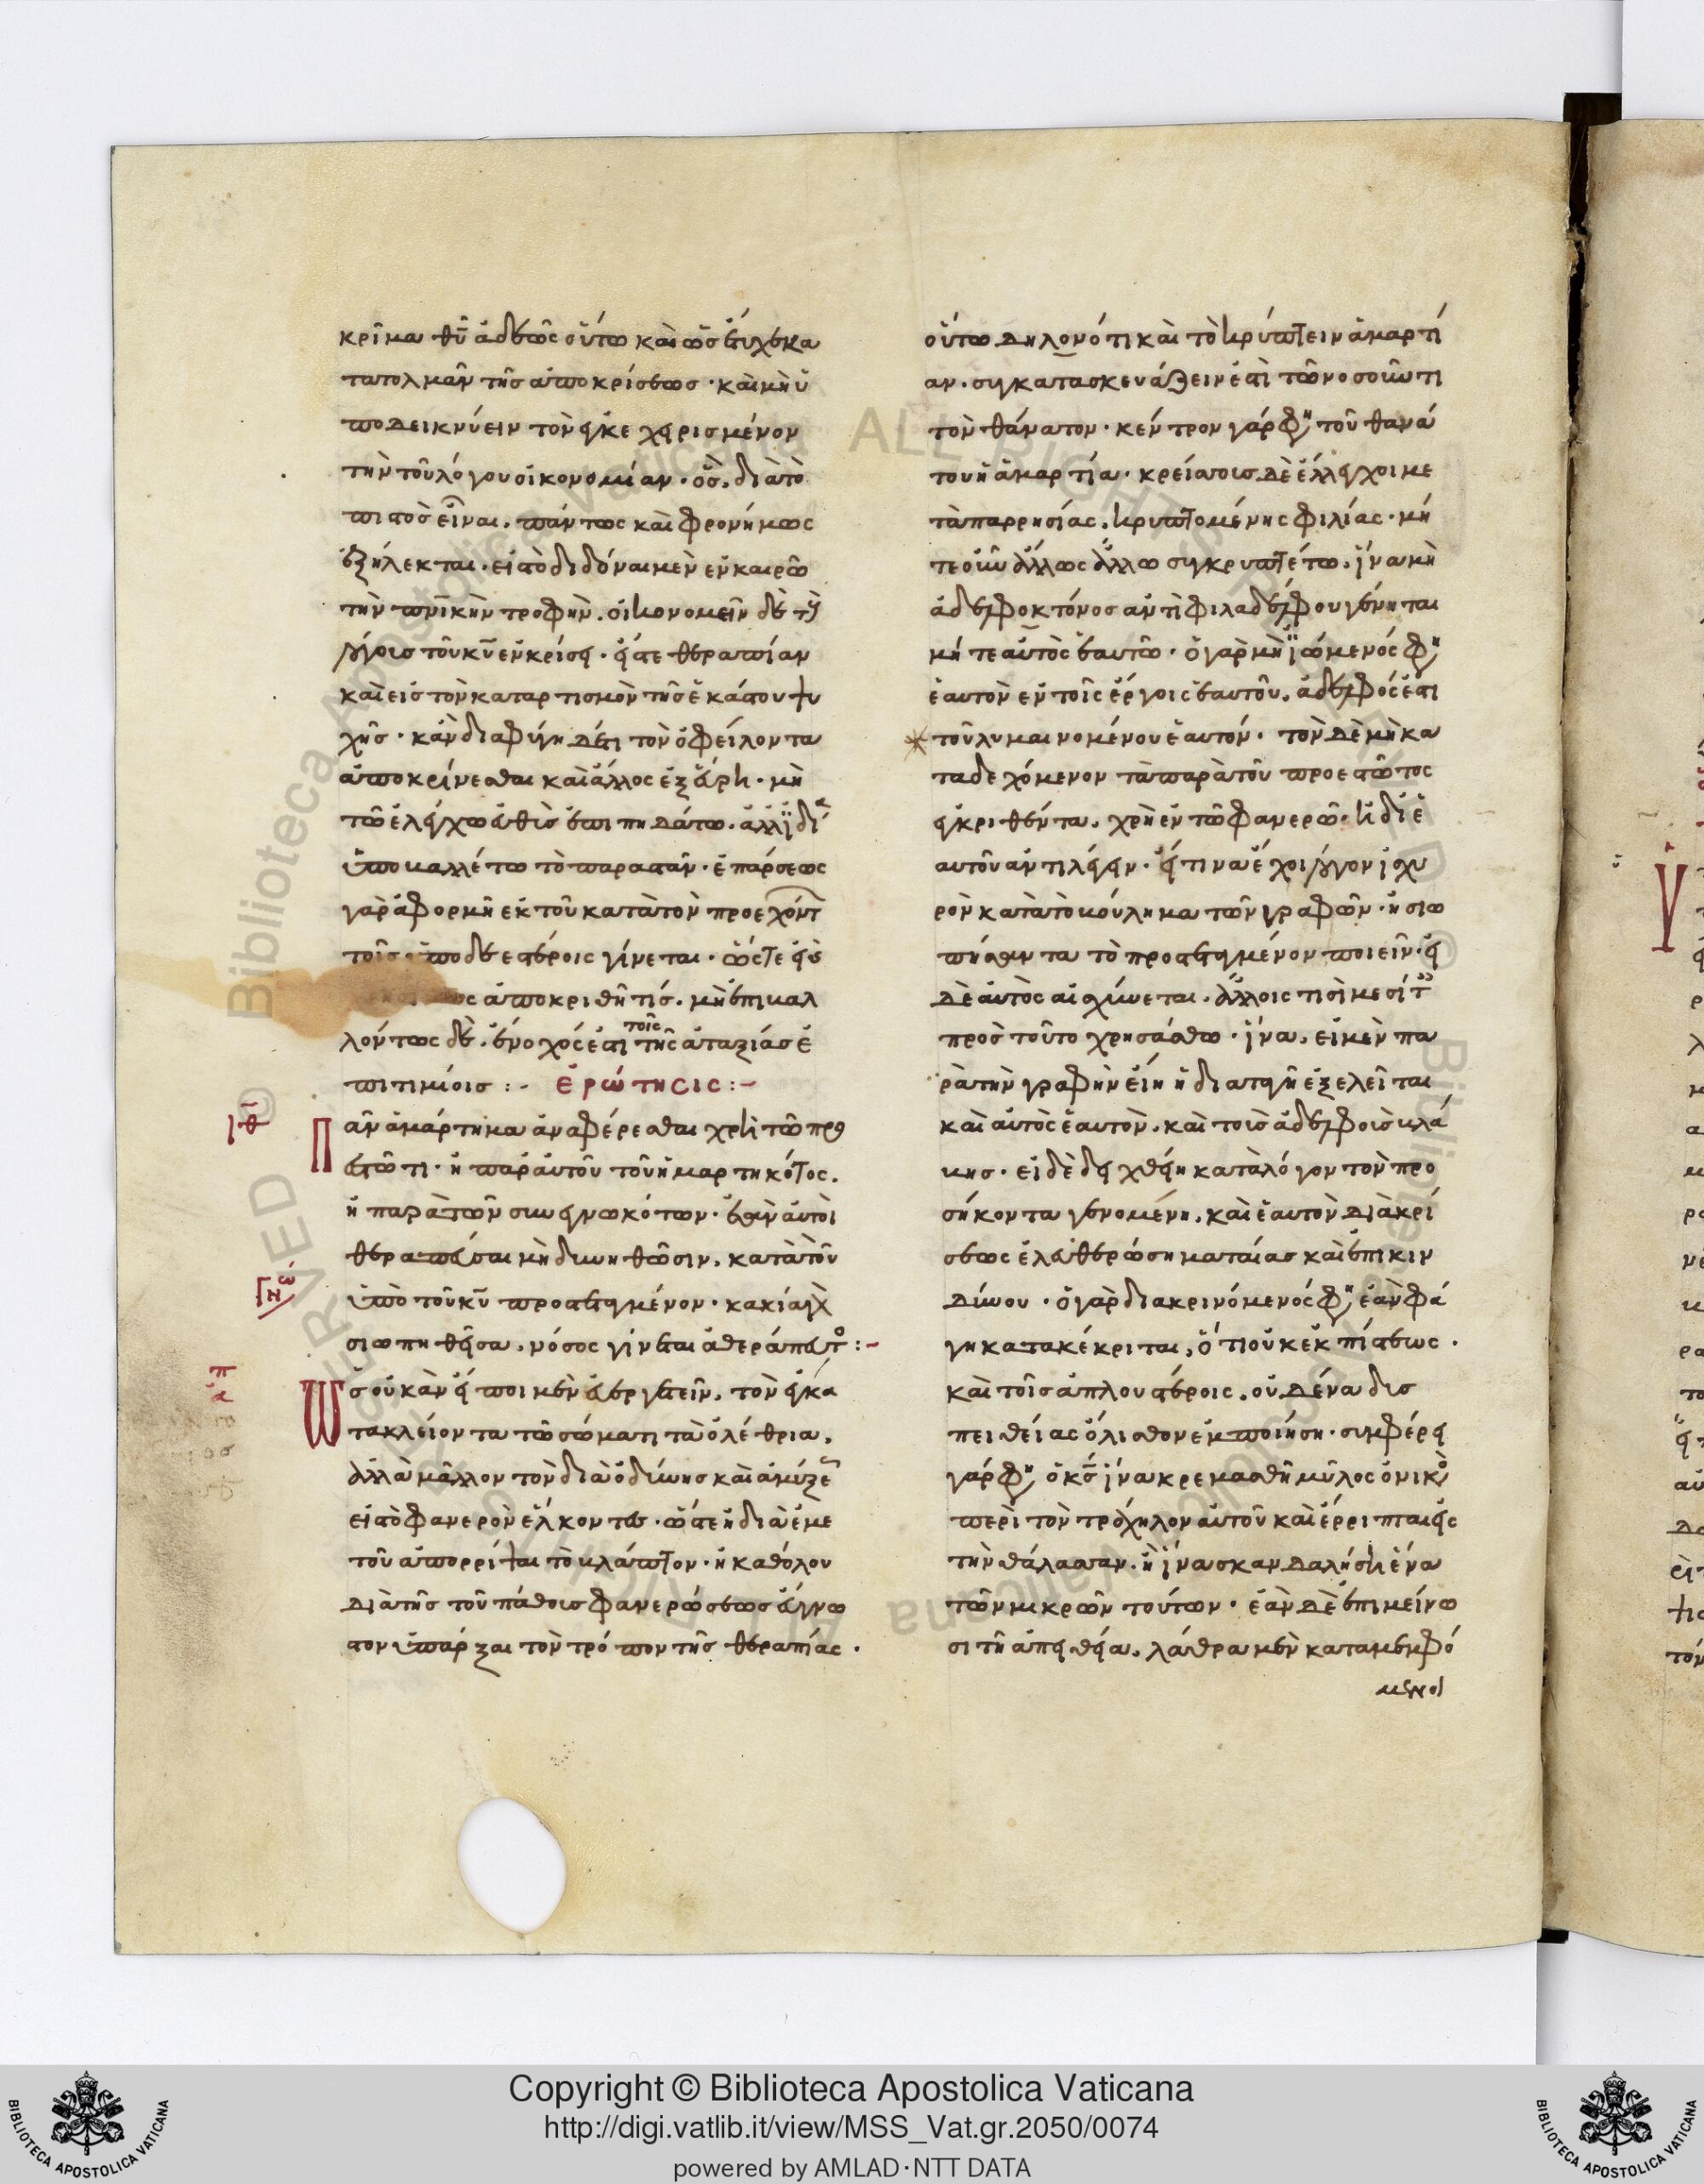 κρῖμα θῡ ἀδεῶς οὕτω καὶ ὡς ἔτυχε κα
τατολμᾶν τῆς ἀποκρίσεως · καὶ μὴ ὑ
ποδεικνύειν τὸν ἐγκεχειρισμένον
τὴν τοῦ λόγου οἰκονομίαν · ὃς, διὰ τὸ
πιστὸς εἶναι, πάντως καὶ φρονήμως
ἐξήλεκται. εἰς τὸ διδόναι μὲν ἐν καιρῶ
τὴν πνῑκὴν τροφὴν. οἰκονομεῖν δὲ τοὺς
λόγους τοῦ κῡ ἐν κρίσει · εἴς τε θεραπείαν
καὶ εἰς τὸν καταρτισμὸν τῆς ἑκάστου ψυ
χῆς · κἂν διαφύγη δέ τι τὸν ὀφείλοντα
ἀποκρίνεσθαι καὶ ἄλλος ἐξεύρη · μὴ
τῶ ἐλέγχω εὐθὺς ἐπιπηδάτω. ἀλλ' ἰδία
ὑποβαλλέτω τὸ παραστὰν · ἐπάρσεως
γὰρ ἀφορμὴ ἐκ τοῦ κατὰ τὸν προεχόντ
τοῖς ὑποδεεστέροις γίνεται · ὥστε εἰ
ἀποκριθῆ τίς. μὴ ἐπιβαλ
λόντως δὲ. ἔνοχός ἐστι τοῖς τῆς ἀταξίας ἐ
πιτιμίοις :- ἐρώτησις :-
ιθ
Πᾶν ἁμάρτημα ἀναφέρεσθαι χρὴ τῶ προ
εστῶτι · ἢ παρ' αὐτοῦ τοῦ ἡμαρτηκότος.
ἢ παρὰ τῶν συνεγνωκότων · ἐὰν αὐτοὶ
θεραπεῦσαι μὴ δυνηθῶσιν. κατὰ τὸν
ὑπὸ τοῦ κῡ προστεταγμένον · κακία γὰρ
σιωπηθεῖσα, νόσος γίνεται ἀθεράπευτο :-
Ὡς οὐκ ἂν εἴποιμεν εὐεργετεῖν, τὸν ἐγκα
τακλείοντα τῶ σώματι τὰ ὀλέθρια,
ἀλλὰ μᾶλλον τὸν διὰ ὀδύνης καὶ ἀμύξε
εἰς τὸ φανερὸν ἕλκοντα · ὥστε ἢ διὰ ἐμέ
του ἀπορρίψαι τὸ βλάπτον · ἢ καθόλου
διὰ τῆς τοῦ πάθους φανερώσεως εὔγνω
στον ὑπάρξαι τὸν τρόπον τῆς θεραπείας .
οὕτω δηλονότι καὶ τὸ κρύπτειν ἁμαρτί
αν. συγκατασκευάζειν ἐστὶ τῶ νοσοῦντι
τὸν θάνατον · κέντρον γάρ φησι τοῦ θανά
του ἡ ἁμαρτία · κρείσσους δὲ ἔλλεγχοι με
τὰ παρρησίας, κρυπτομένης φιλίας · μή
τε οὖν ἄλλως ἄλλω συγκρυπτέτω. ἵνα μὴ
ἀδελφοκτόνος ἀντὶ φιλαδέλφου γένηται
μήτε αὐτὸς ἑαυτῶ · ὁ γὰρ μὴ ἰώμενός φησι
ἑαυτὸν ἐν τοῖς ἔργοις ἑαυτοῦ, ἀδελφός ἐστι
τοῦ λυμαινομένου ἑαυτόν · τὸν δὲ μὴ κα
ταδεχόμενον τὰ παρὰ τοῦ προεστῶτος
ἐγκριθέντα, χρὴ ἐν τῶ φανερῶ. ἢ ἰδία
αὐτοῦ ἀντιλέγειν · εἴ τινα ἔχοι λόγον ἰσχυ
ρὸν κατὰ τὸ βούλημα τῶν γραφῶν · ἢ σιω
πήσαντα τὸ προστεταγμένον ποιεῖν · εἰ
δὲ αὐτὸς αἰσχύνεται. ἄλλοις τισὶ μεσίτ
πρὸς τοῦτο χρησάσθω · ἵνα, εἰ μὲν πα
ρὰ τὴν γραφὴν εἴη ἡ διαταγὴ ἐξελεῖται
καὶ αὐτὸς ἑαυτὸν. καὶ τοὺς ἀδελφοὺς βλά
βης · εἰ δὲ δειχθείη κατὰ λόγον τὸν προ
σήκοντα γενομένη, καὶ ἑαυτὸν διακρί
σεως ἐλευθερώση ματαίας καὶ ἐπικιν
δύνου · ὁ γὰρ διακρινόμενός φησι, ἐὰν φά
γη κατακέκριται, ὅτι οὐκ ἐκ πίστεως .
καὶ τοῖς ἁπλουστέροις, οὐδένα δυσ
πειθείας ὄλισθον ἐμποιήση · συμφέρει
γάρ φησι ὁ κς̄ ἵνα κρεμασθῆ μύλος ὀνικὸ
περὶ τὸν τράχηλον αὐτοῦ καὶ ἔρριπται εἰς
τὴν θάλασσαν. ἢ ἵνα σκανδαλήση ἕνα
τῶν μικρῶν τούτων · ἐὰν δὲ ἐπιμείνω
σι τῆ ἀπειθεία, λάθρα μὲν καταμεμφό
μενοι
Copyright © Biblioteca Apostolica Vaticana
http://digi.vatlib.it/view/MSS_Vat.gr.2050/0074
powered by AMLAD·NTT DATA